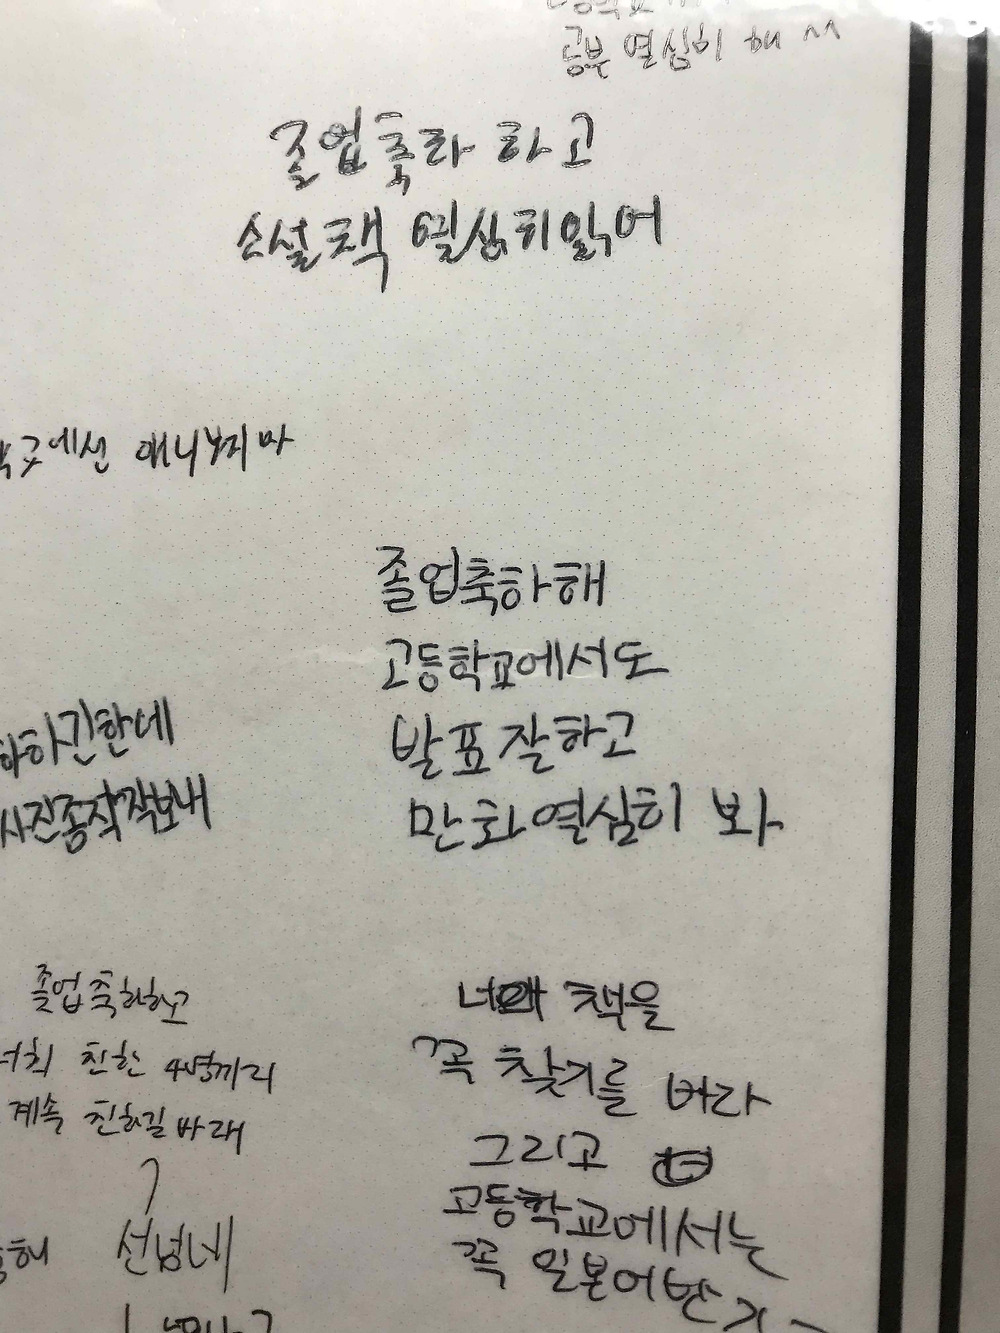 공부 열심히 해 ^^
졸업축하 하고
소설책 열심히읽어
애니보지마
졸업축하해
고등학교에서도
발표잘하고
만화열심히 봐
사진종작작보내
졸업축하하고
너희 친한 4명끼리
계속 친하길 바래
책을
꼭 찾기를 바라
그리고
고등학교에서는
꼭 일본어반